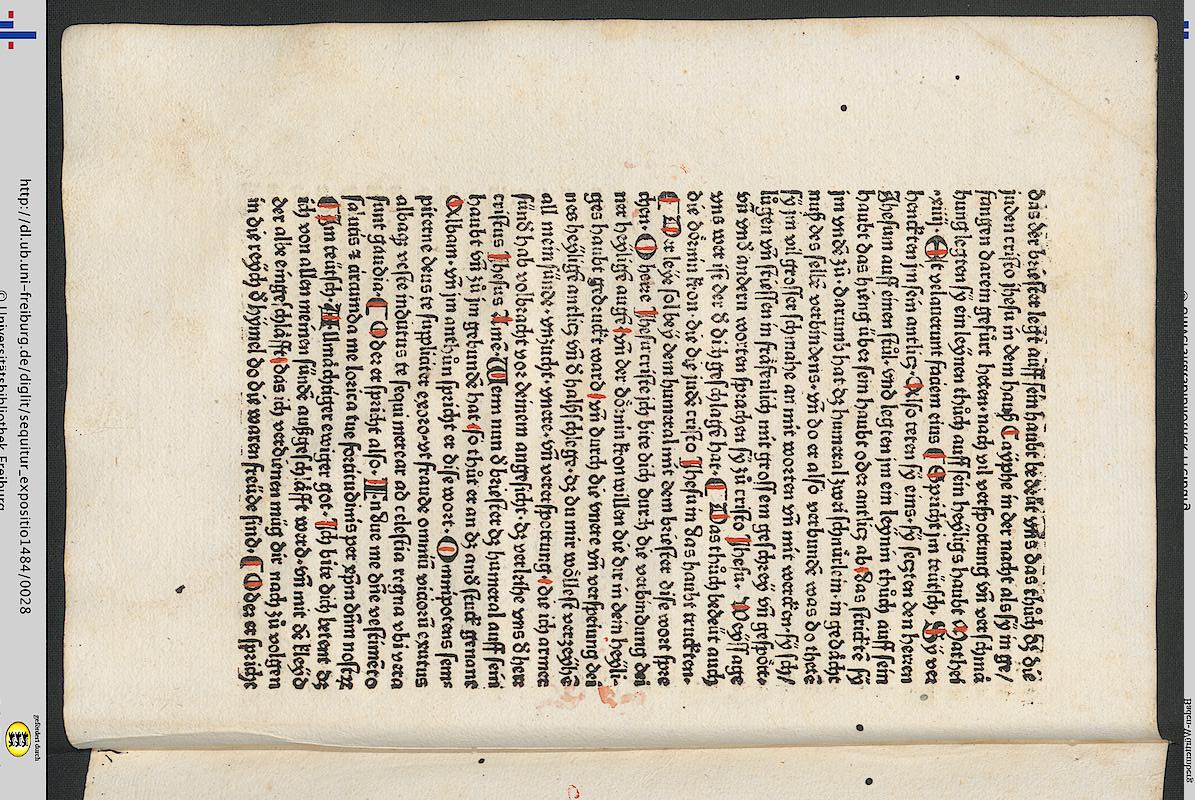 das der briester legt auff sein haubt bedeüt vns das thůch dz die
juden cristo jhesu in dem hauß Cayphe in der nacht als sy jn ge/
fangen darein gefürt heten. nach vil verspotung vñ verschmä
hung legten sy ein leynen thůch auff sein heyligs haubt Mathei
.xxiii. Et velauerunt faciem eius Spricht jm teütsch. Sy ver
henckten jm sein antlitz. Also teten sy eins. sy setzten den herren
Jhesum auff einen stůl. vnd legten jm ein leynin thůch auff sein
haubt das hieng über sein haubt oder antlitz ab das strickte sy
jm vndē zů. darumb hat dz humeral zwei schnürlein. in gedächt
nuß des selbē verbindens. vñ do er also verbunde was do thetē
sy jm vil grosser schmahe an mit worten vñ mit wercken. sy sch/
lůgen vñ stiessen in fräfenlich mit grossem geschrey vñ gespöte.
vñ vnd andern worten sprachen sy zů cristo Jhesu. Weyssage
vns wer ist der d dich geschlagē hat. Das thůch bedeüt auch
die dörnin kron. die die judē cristo Jhesu in das haubt truckten.
Der leye sol bey dem humeral mit dem briester dise wort spre
chen. O herre Jhesu criste ich bite dich durch die verbindung dei
ner heyligē augē vñ der dörnin kron willen die dir in dein heyli-
ges haubt gedruckt ward vñ durch die vnere vñ verspeiung dei
nes heyligē antlitz vñ d halßschlege. dz du mir wöllest verzeyhē
all mein sünde. vnzucht. vnere. vñ vererspottung. die ich armer
sünd hab volbracht vor deinem angesicht. dz verleihe vns d here
cristus Jhesus Amē Wenn nun d briester dz humeral auff sein
haubt vñ zů jm gebundē hat so thůt er an dz and stuck genant
Alban. vñ jm anthůn spricht er dise wort. Omnipotens sem
piterne deus te suppliciter exoro. vt fraude omniū vicioꝝ exutus
albaqʒ veste indutus te sequi merear ad celestia regna vbi vera
sunt gaudia. Oder er spricht also. Indue me dñe vestimēto
salutis ⁊ circumda me lorica tue fortitudinis per xp̄m dnm nostrꝫ
Im teütsch. Allmächtiger ewiger got. Ich bite dich betent dz
ich von allen meinen sündē außgeschäfft werd. vñ mit dē kleyd
der albe eingeschläfft das ich verdienen müg dir nach zů volgen
in die reych d hymel do die waren freüde sind. Oder er spricht
http://dl.ub.uni-freiburg.de/diglit/sequitur_expositio1484/0028
© Universitätsbibliothek Freiburg
gefördert durch